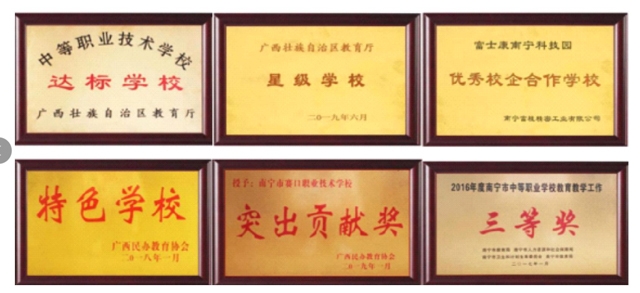 中等职业技术学校
达标学校
广西壮族自治区教育厅
广西壮族自治区教育厅
星级学校
二〇一九年六月
富士康南宁科技园
优秀校企合作学校
南宁富桂精密工业有限公司
特色学校
广西民办教育协会
二〇一八年一月
授予：南宁市赛口职业技术学校
突出贡献奖
广西民办教育协会
二〇一九年一月
2016年度南宁市中等职业学校教育教学工作
三等奖
二〇一七年一月